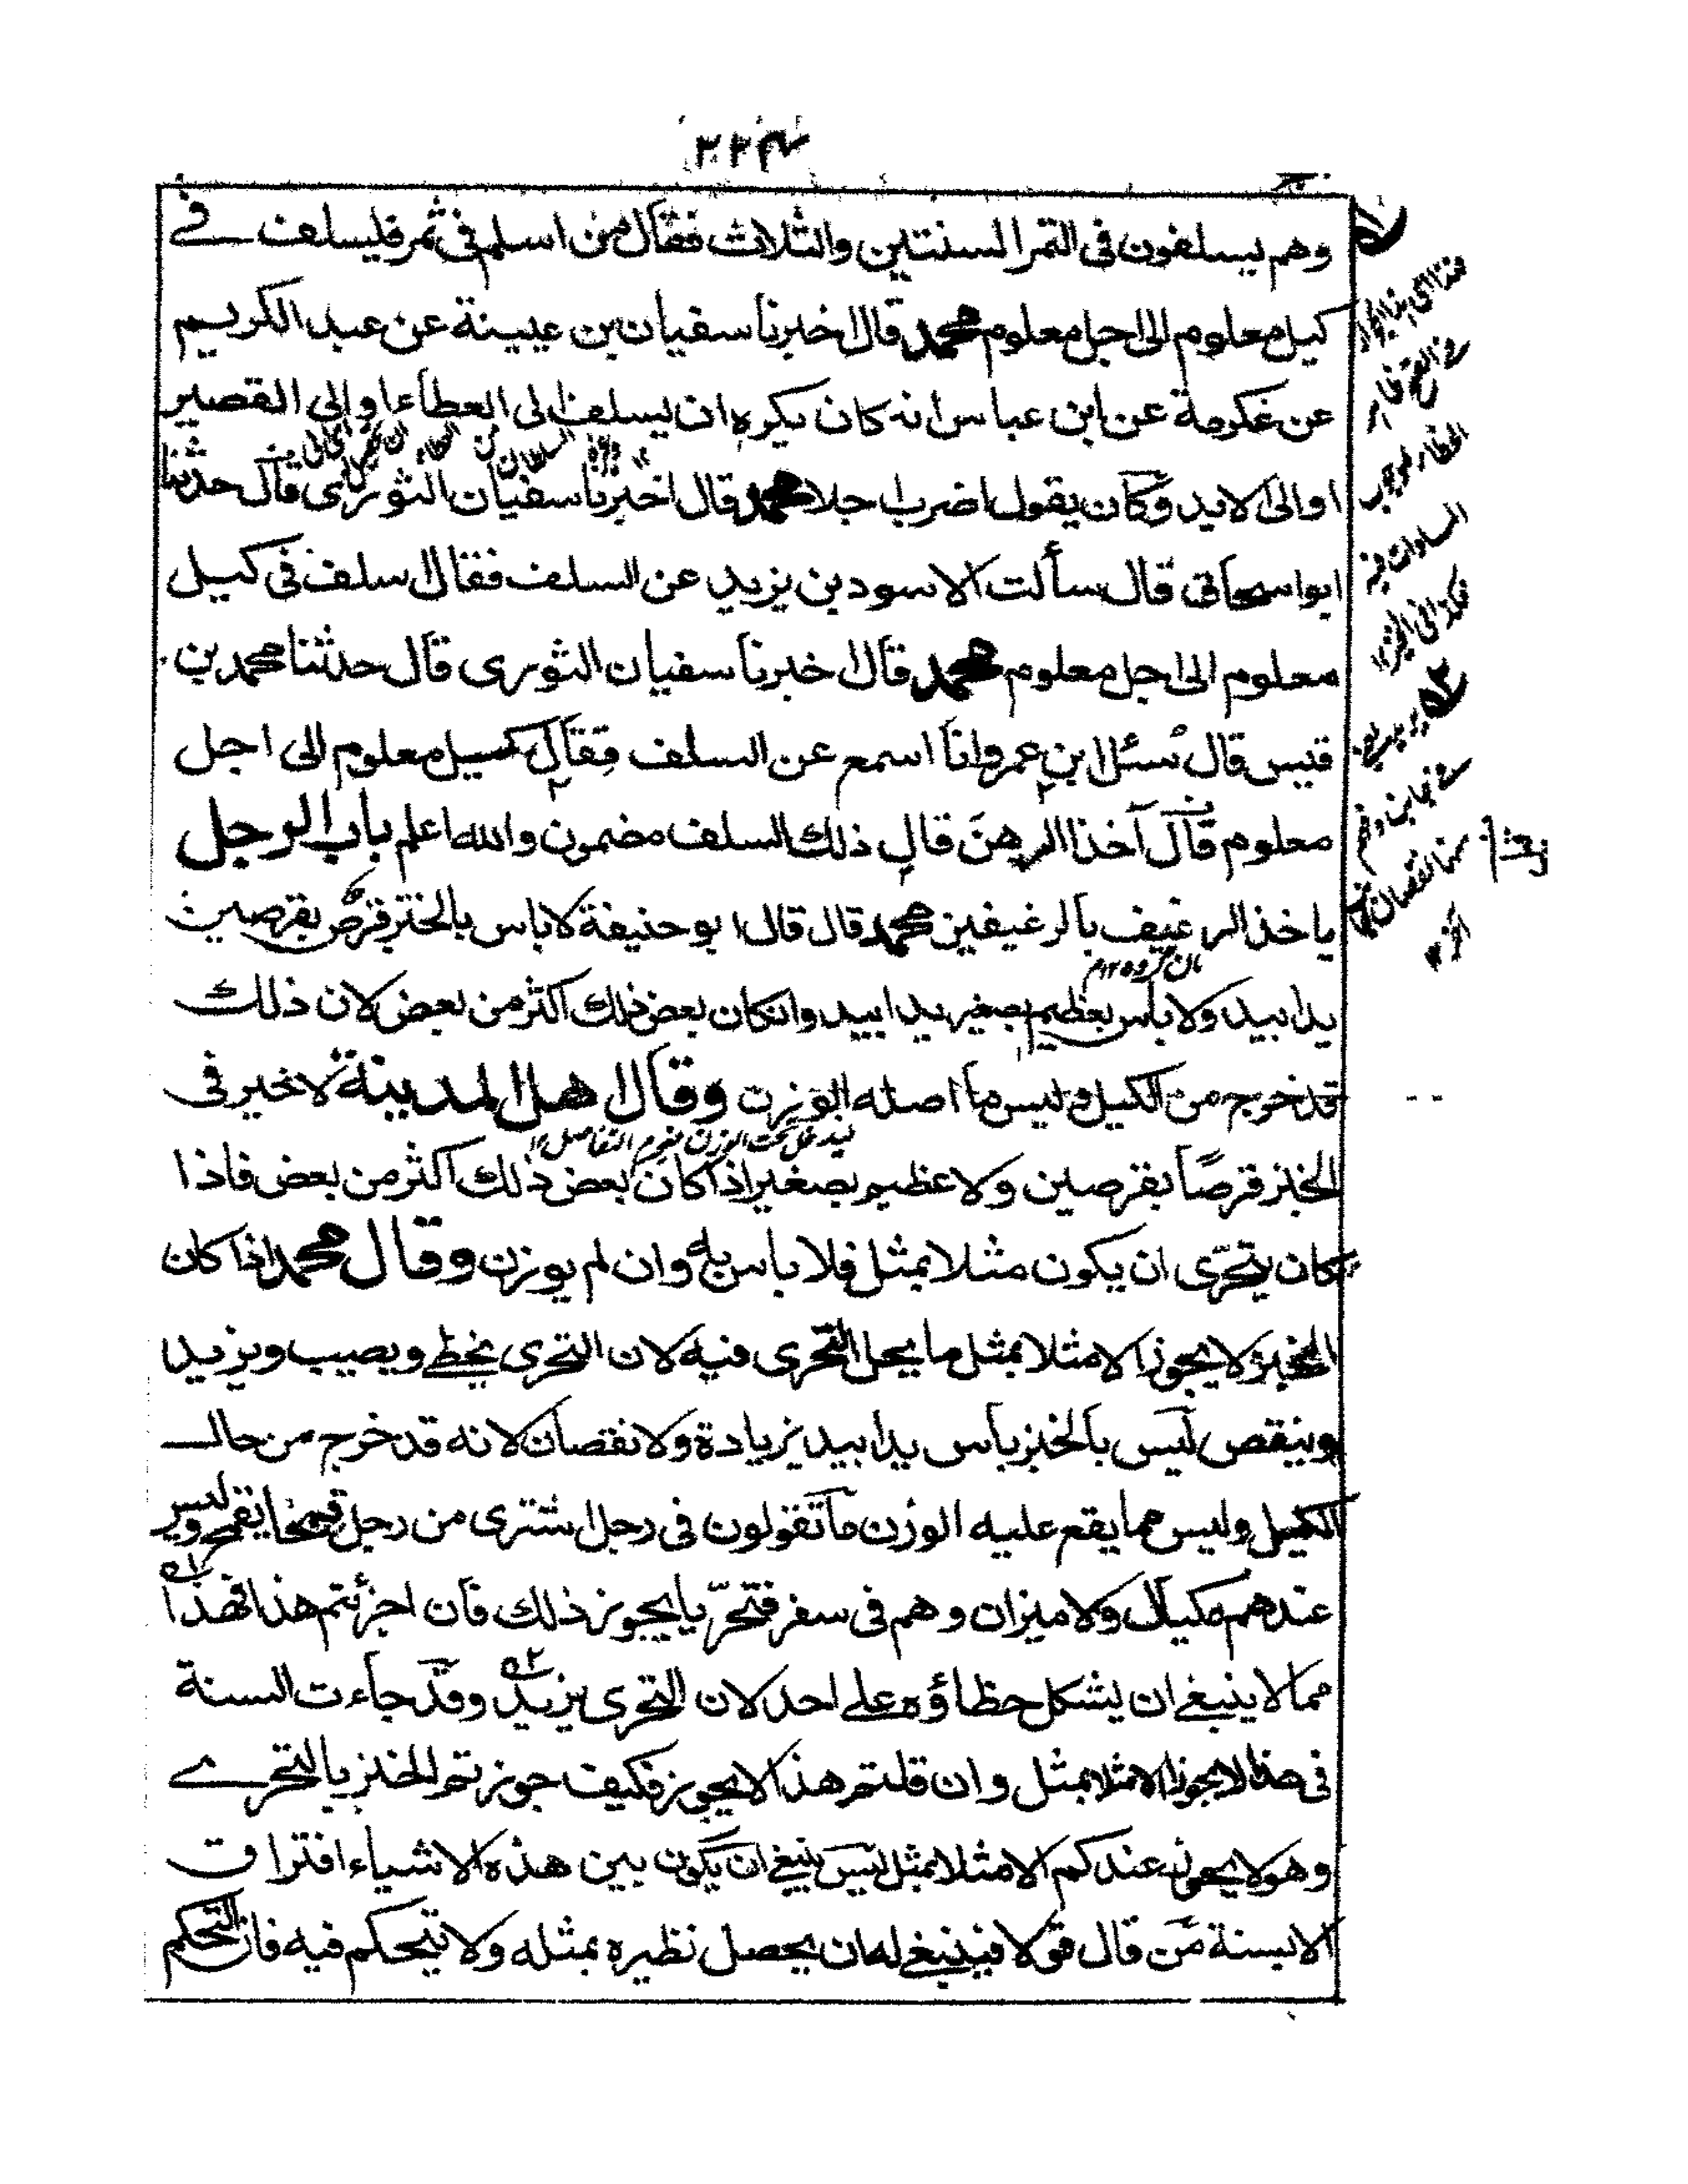 وهم يسلفون فى التمر السنتين والثلاث فقال من اسلم فى ثمر فليسلف فے
كيل معلوم الى اجل معلوم محمد قال اخبرنا سفيان بن عيينة عن عبد الكريم
عن عكرمة عن ابن عباس انه كان يكره ان يسلف الى العطاء او الى القصير
او الى الاندر وكان يقول اضرب اجلا محمد قال اخبرنا سفيان الثورى قال حدثنا
ابو اسحاق قال سألت الاسود بن يزيد عن السلف فقال اسلف فى كيل
معلوم الى اجل معلوم محمد قال اخبرنا سفيان الثورى قال حدثنا محمد بن
قيس قال سئل ابن عمر وانا اسمع عن السلف فقال كيل معلوم الى اجل
معلوم قال آخذ الرهن قال ذلك السلف مضمون والله اعلم باب الرجل
ياخذ الرغيف بالرغيفين محمد قال قال ابو حنيفة لا باس بالخبز قرص بقرصين
يدا بيد ولا بأس بعظيم بصغير يدا بيد وان كان بعض ذلك اكثر من بعض لان ذلك
قد خرج من الكيل وليس ما اصله الوزن وقال اهل المدينة لا خير فى
الخبز قرصا بقرصين ولا عظيم بصغير اذا كان بعض ذلك اكثر من بعض فاذا
كان يتحرى ان يكون مثلا بمثل فلا باس به وان لم يوزن وقال محمد اذا كان
الخبز لا يجوز الا مثلا بمثل ما يحل التحرى فيه لان التحرى يخطے ويصيب ويزيد
وينقص ليس بالخبز باس يدا بيد بزيادة ولا نقصان لانه قد خرج من حال
الكيل وليس مما يقع عليه الوزن ما تقولون فى رجل اشترى من رجل قمحا بقمح وليس
عندهم مكيال ولا ميزان وهم فى سفر فتحرّيا يجوز ذلك فان اجزتم هذا فهذا
مما لا ينبغے ان يشكل خطاؤه علے احد لان التحرى يزيد وقد جاءت السنة
فى هذا لا يجوز الا مثلا بمثل وان قلتم هذا لا يجوز فكيف جوزتم الخبز بالتحرے
وهو لا يجوز عندكم الا مثلا بمثل ليس ينبغے ان يكون بين هذه الاشياء افتراق
الا بسنة من قال قولا فينبغے له ان يحصل نظيره بمثله ولا يتحكم فيه فان التحكم